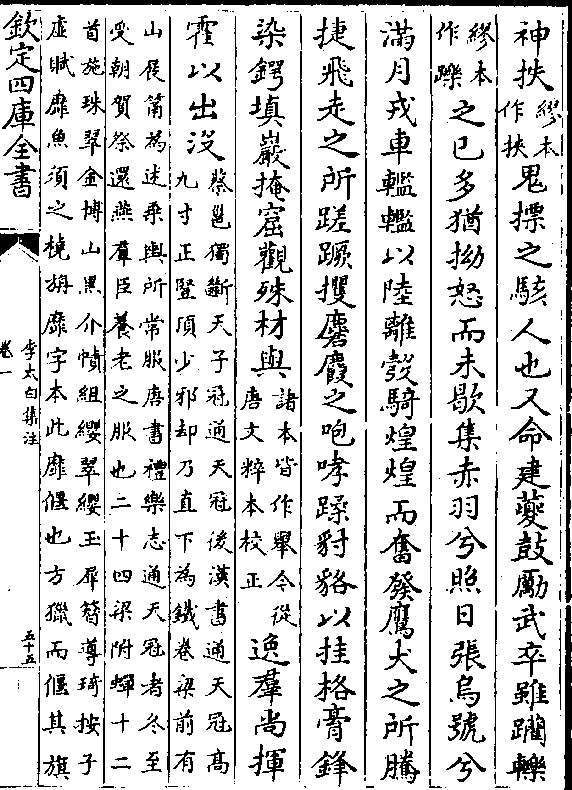 神抶繆本作挟鬼摽之駭人也又命建夔鼓勵武卒雖躪轢
繆本作躒之已多猶拗怒而未歇集赤羽兮照日張烏號兮
滿月戎車轞轞以陸離彀騎煌煌而奮發鷹犬之所騰
捷飛走之所蹉蹶攫麏麚之咆哮蹂豺貉以挂格膏鋒
染鍔填巖掩窟觀殊材與諸本皆作舉今從唐文粹本校正逸羣尚揮
霍以出沒
蔡邕獨斷天子冠通天冠後漢書通天冠高
九寸正豎頂少邪却乃直下為鐵卷梁前有
山展筩為述乗輿所常服唐書禮樂志通天冠者冬至
受朝賀祭還燕羣臣養老之服也二十四梁附蟬十二
首施珠翠金博山黑介幘組纓翠緌玉犀簪導琦按子
虚賦靡魚須之橈旃靡字本此靡偃也方獵而偃其旗
欽定四庫全書
李太白集注
卷一
五十五